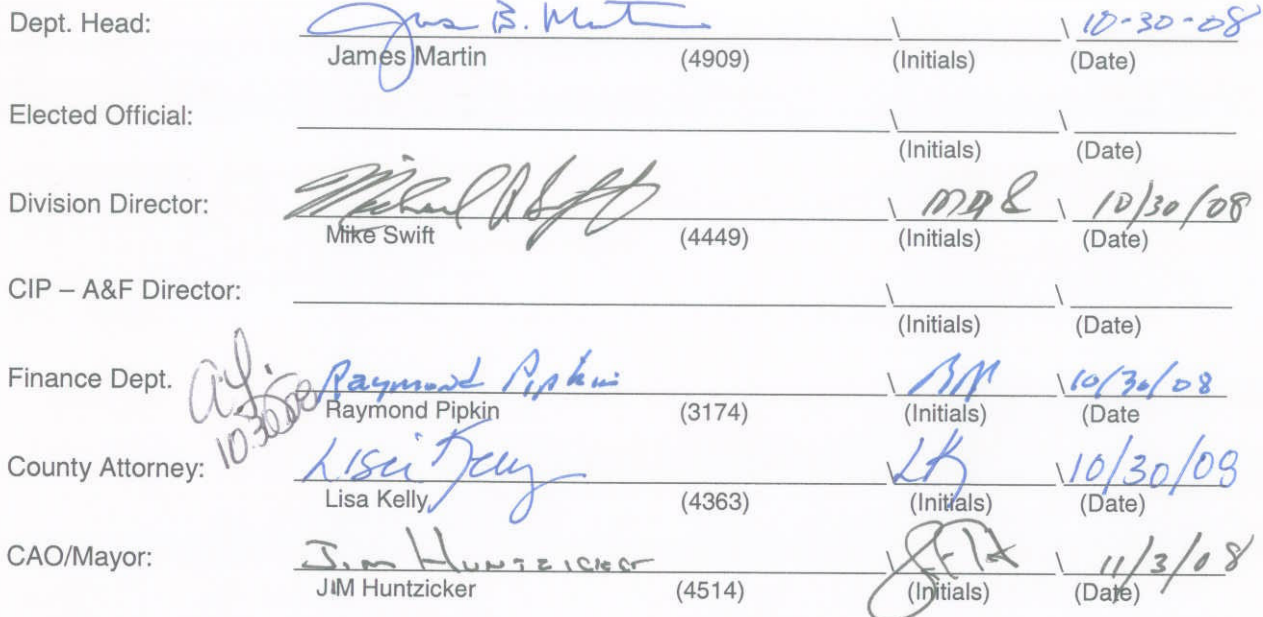 Dept. Head: James B. Martin \ \ 10-30-08
James Martin (4909) (Initials) (Date)
Elected Official: \ \
(Initials) (Date)
Division Director: \ \ 10/30/08
Mike Swift (4449) (Initials) (Date)
CIP – A&F Director: \ \
(Initials) (Date)
Finance Dept. Raymond Pipkin \ \ 10/30/08
Raymond Pipkin (3174) (Initials) (Date
County Attorney: Lisa Kelly \ LK \ 10/30/08
Lisa Kelly (4363) (Initials) (Date)
CAO/Mayor: Jim Huntzicker \ \ 11/3/08
JIM Huntzicker (4514) (Initials) (Date)